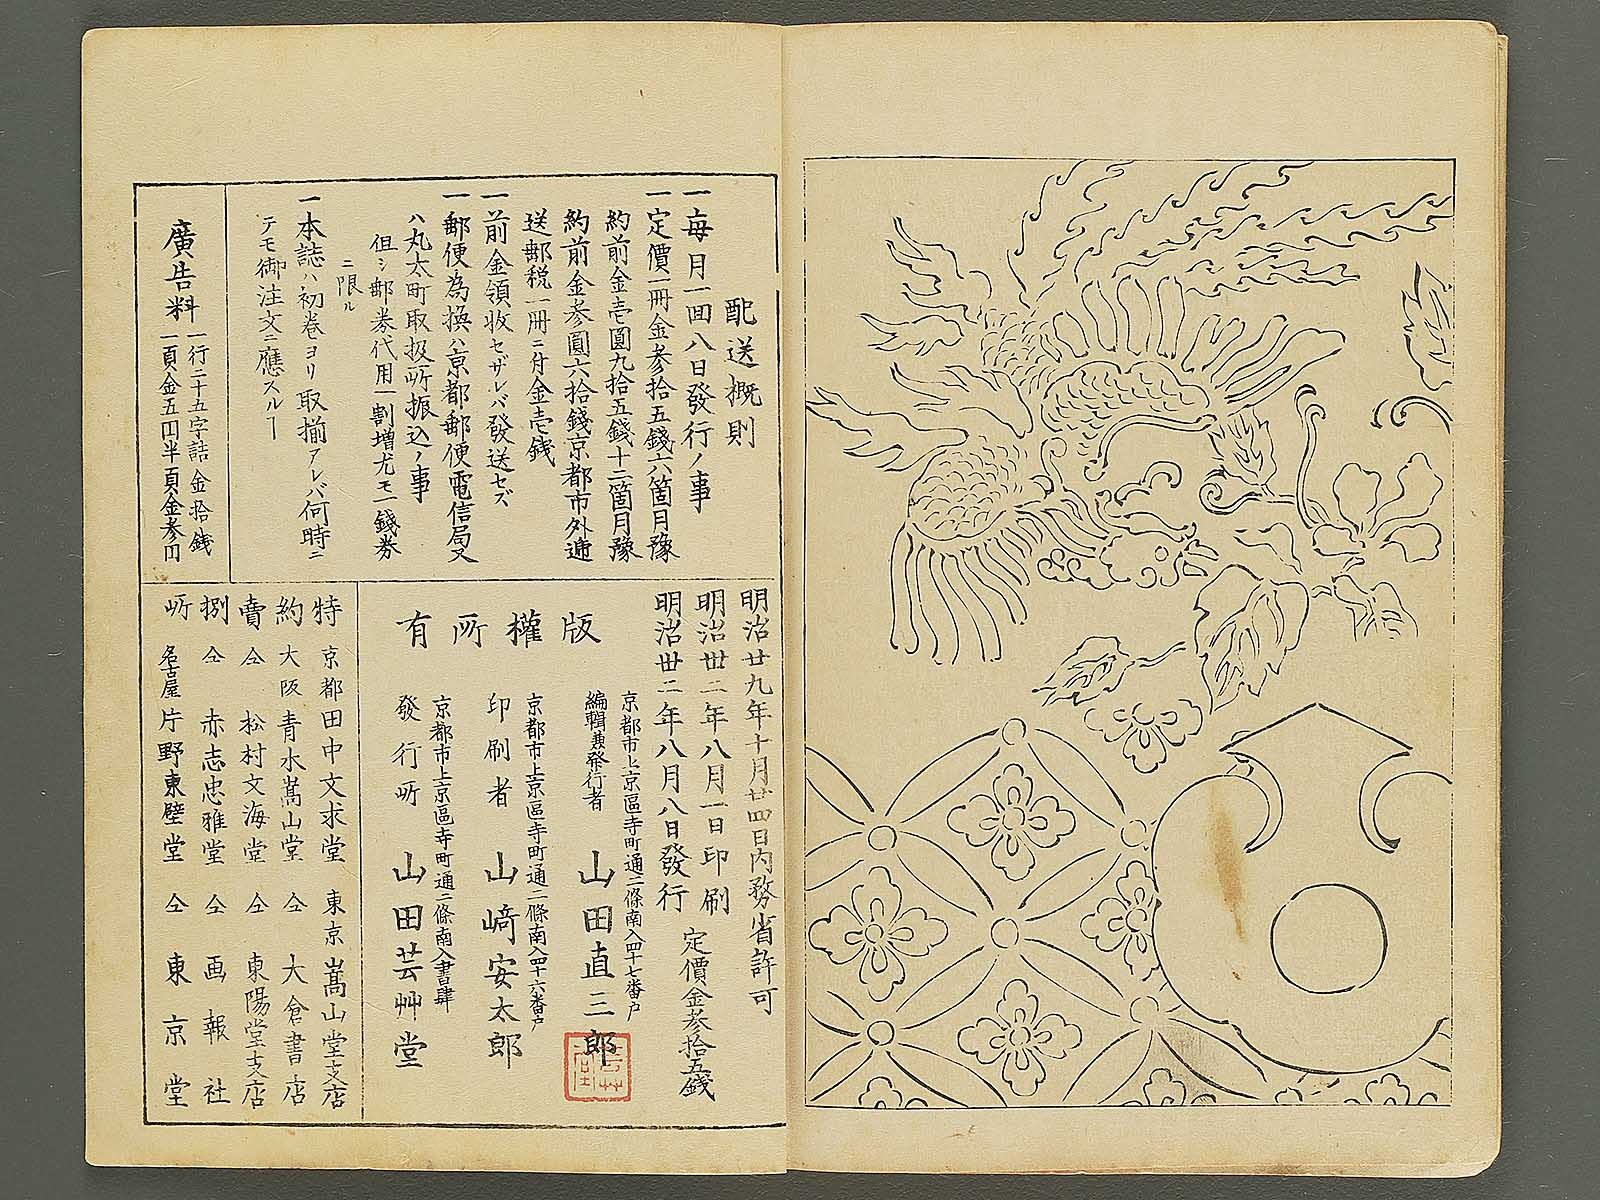 配送概則
一毎月一回八日發行ノ事
一定價一冊金参拾五錢六箇月豫
約前金壱圓九拾五錢十二箇月豫
約前金参圓六拾錢京都市外遞
送郵税一冊ニ付金壱銭
一前金領收セザレバ發送セズ
一郵便為換ハ京都郵便電信局又
ハ丸太町取扱所振込ノ事
但シ郵券代用一割増尤モ一錢券
ニ限ル
一本誌ハ初巻ヨリ取揃アレバ何時ニ
テモ御注文ニ應スルヿ
廣告料
一行二十五字詰金拾銭
一頁金五円半頁金参円
明治廿九年十月廿四日内務省許可
明治丗二年八月一日印刷
明治丗二年八月八日發行
定價金参拾五錢
版權所有
京都市上京區寺町通二條南入四十七番戸
編輯兼發行者 山田直三郎
京都市上京區寺町通二條南入四十六番戸
印刷者 山﨑安太郎
京都市上京區寺町通二條南入書肆
發行所 山田芸艸堂
特約賣捌所
京都田中文求堂 東京嵩山堂支店
大阪青木嵩山堂 仝大倉書店
仝松村文海堂 仝東陽堂支店
仝赤志忠雅堂 仝画報社
名古屋片野東壁堂 仝東京堂
芸艸堂